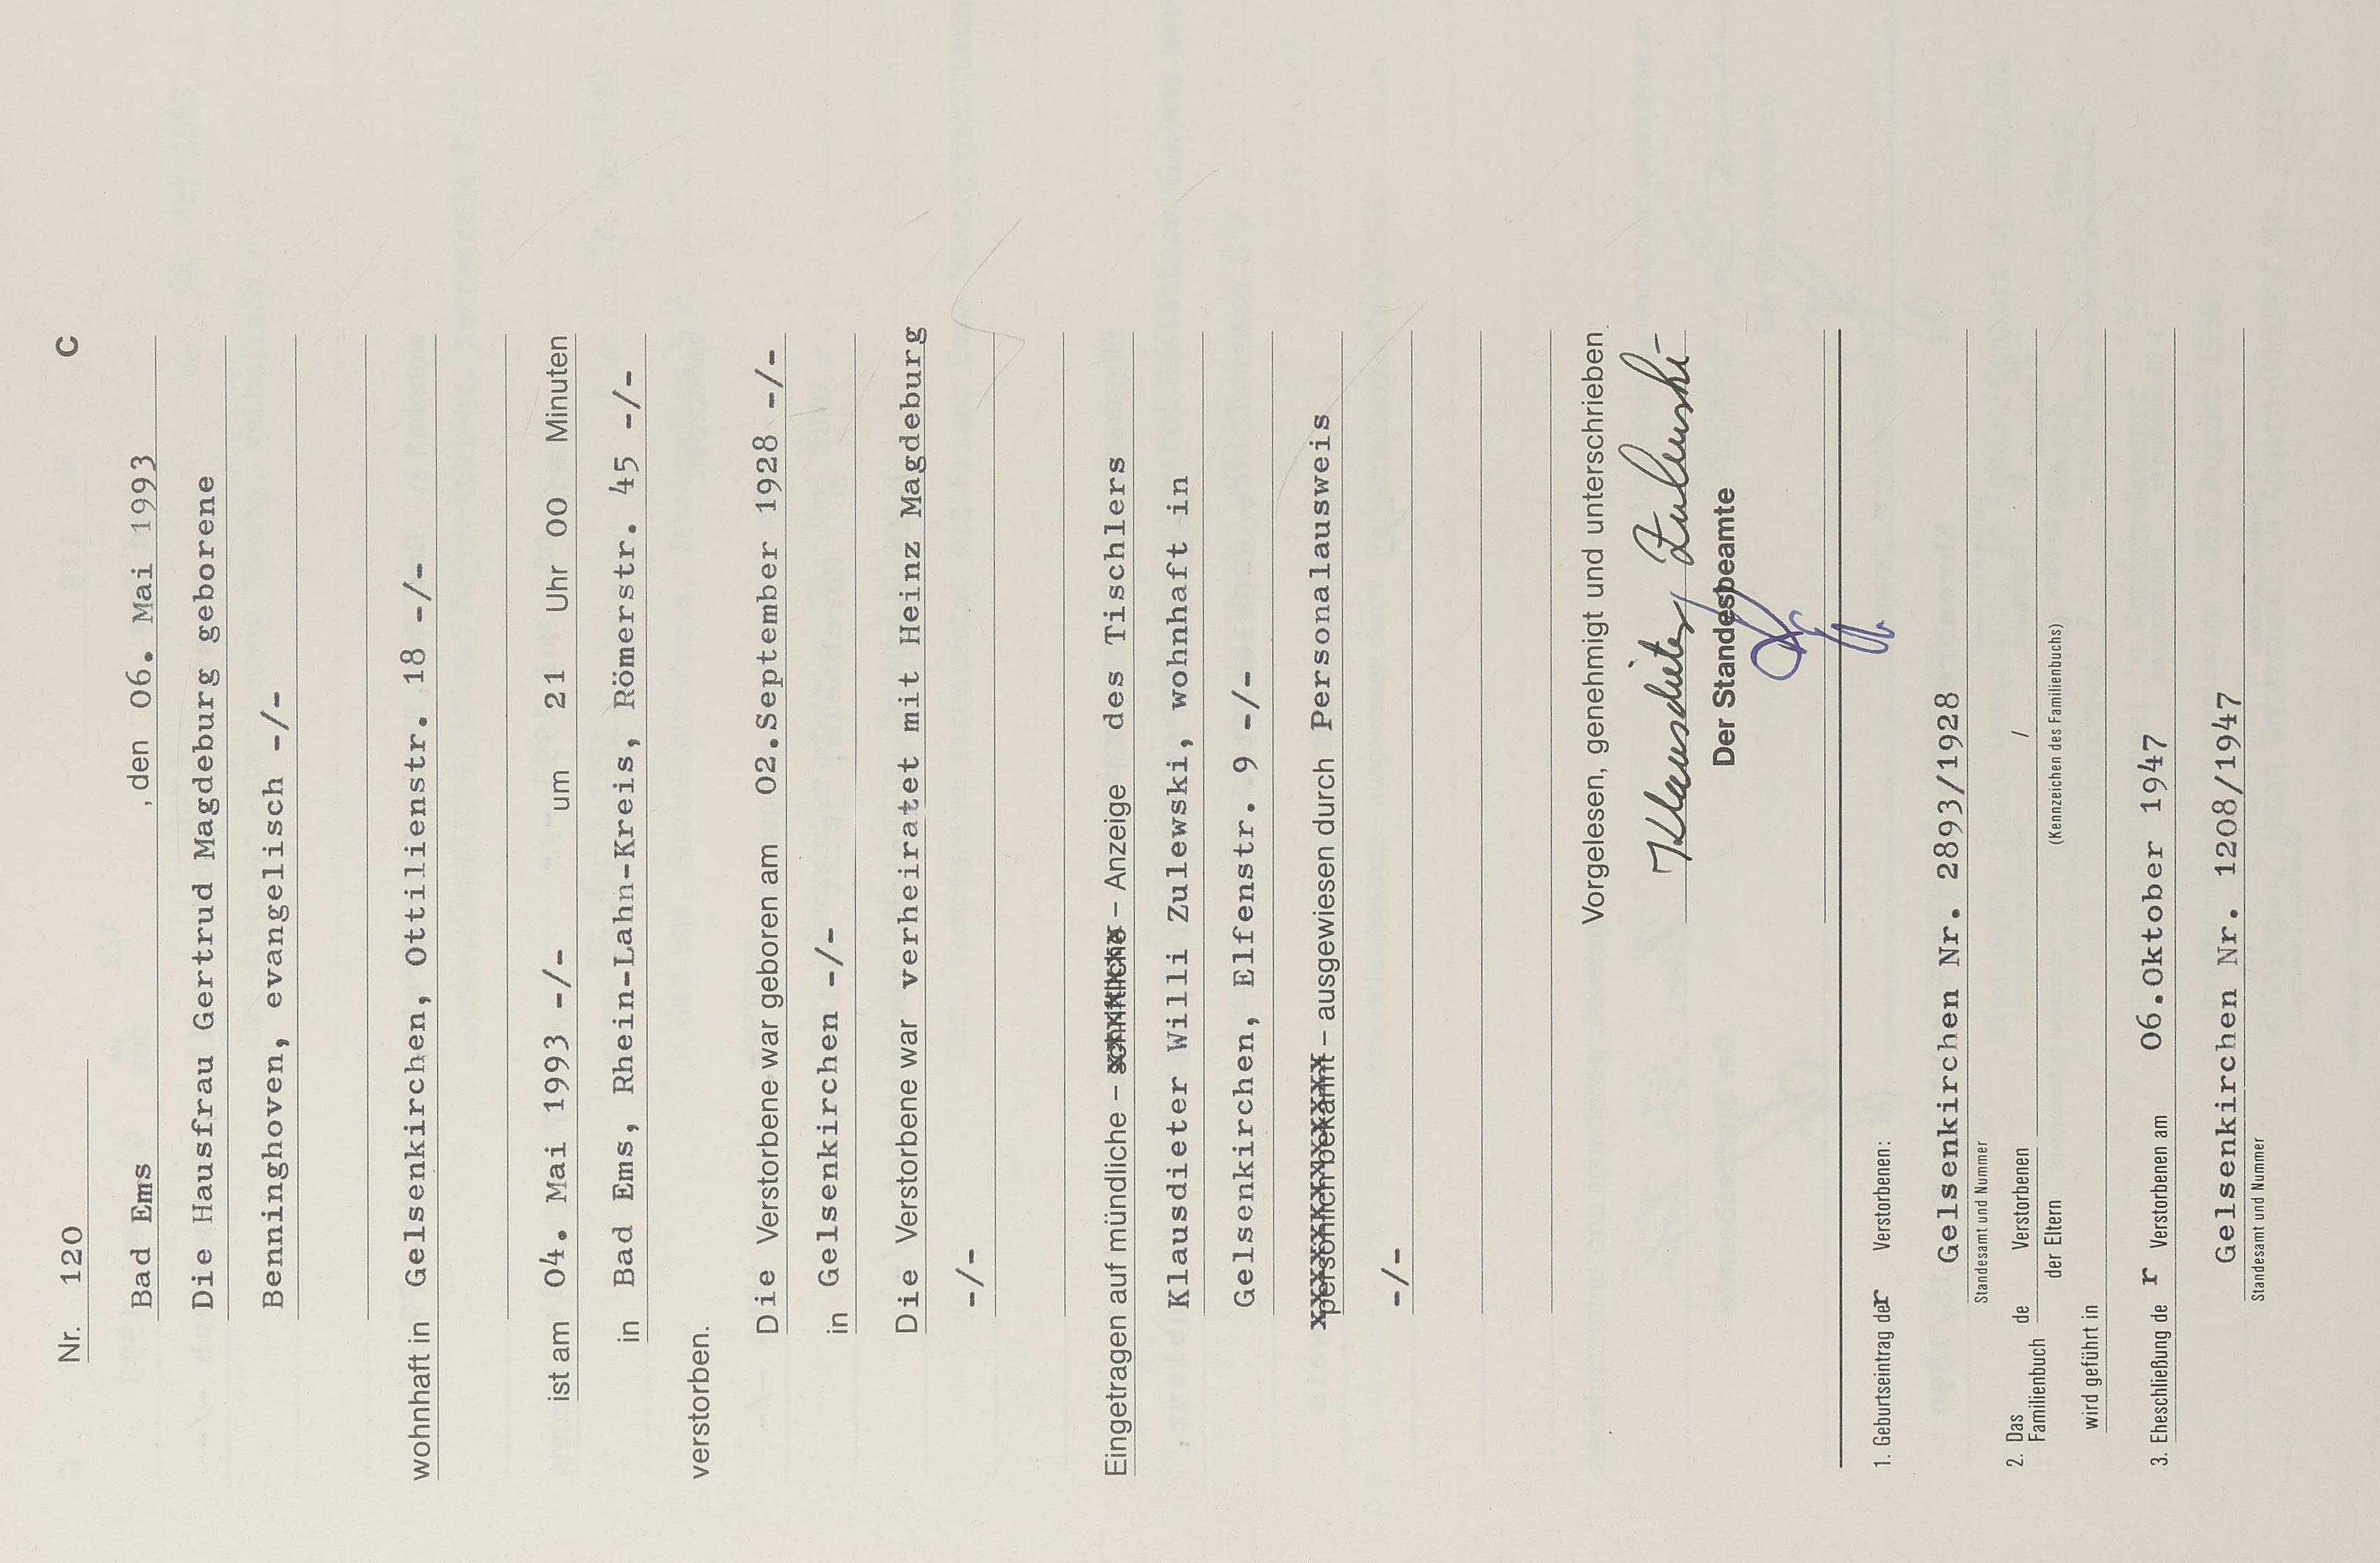 Nr. 120 C
Bad Ems , den 06. Mai 1993
Die Hausfrau Gertrud Magdeburg geborene
Benninghoven, evangelisch -/-
wohnhaft in Gelsenkirchen, Ottilienstr. 18 -/-
ist am 04. Mai 1993 -/- um 21 Uhr 00 Minuten
in Bad Ems, Rhein-Lahn-Kreis, Römerstr. 45 -/-
verstorben.
Die Verstorbene war geboren am 02.September 1928 -/-
in Gelsenkirchen -/-
Die Verstorbene war verheiratet mit Heinz Magdeburg
-/-
Eingetragen auf mündliche – schriftliche – Anzeige des Tischlers
Klausdieter Willi Zulewski, wohnhaft in
Gelsenkirchen, Elfenstr. 9 -/-
persönlich bekannt – ausgewiesen durch Personalausweis
-/-
Vorgelesen, genehmigt und unterschrieben
Klausdieter Zulewski
Der Standesbeamte
1. Geburtseintrag der Verstorbenen:
Gelsenkirchen Nr. 2893/1928
Standesamt und Nummer
2. Das Familienbuch de Verstorbenen /
der Eltern (Kennzeichen des Familienbuchs)
wird geführt in
3. Eheschließung de r Verstorbenen am 06.Oktober 1947
Gelsenkirchen Nr. 1208/1947
Standesamt und Nummer